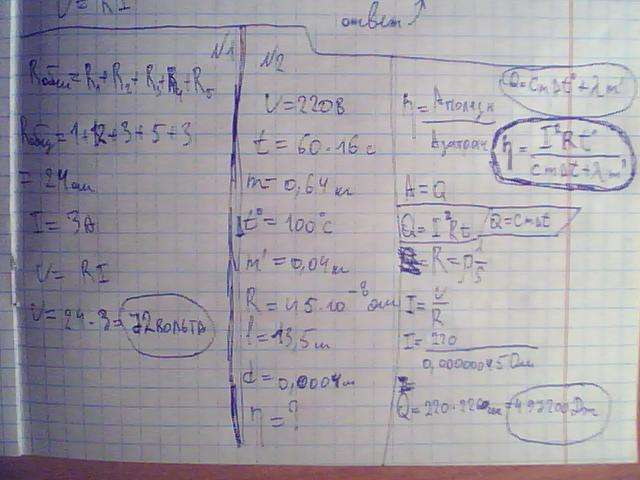 U = RI
ответ
N1
Rобщ = R₁ + R₂ + R₃ + R₄ + R₅
Rобщ = 1 + 12 + 3 + 5 + 3
= 24 ом
I = 3А
U = RI
U = 24 · 3 = 72 вольта
N2
U = 220В
t = 60 · 16 с
m = 0,64 кг
t° = 100°с
m' = 0,04 кг
R = 45 · 10⁻⁸ ом
l = 13,5 м
d = 0,0004 м
η = ?
Q = cmΔt° + λm'
η = Aполезн / Aзатрач
η = I²Rt / cmΔt + λm'
A = Q
Q = I²Rt
Q = cmΔt
R = ρ l/S
I = U/R
I = 220 / 0,00000045 Ом